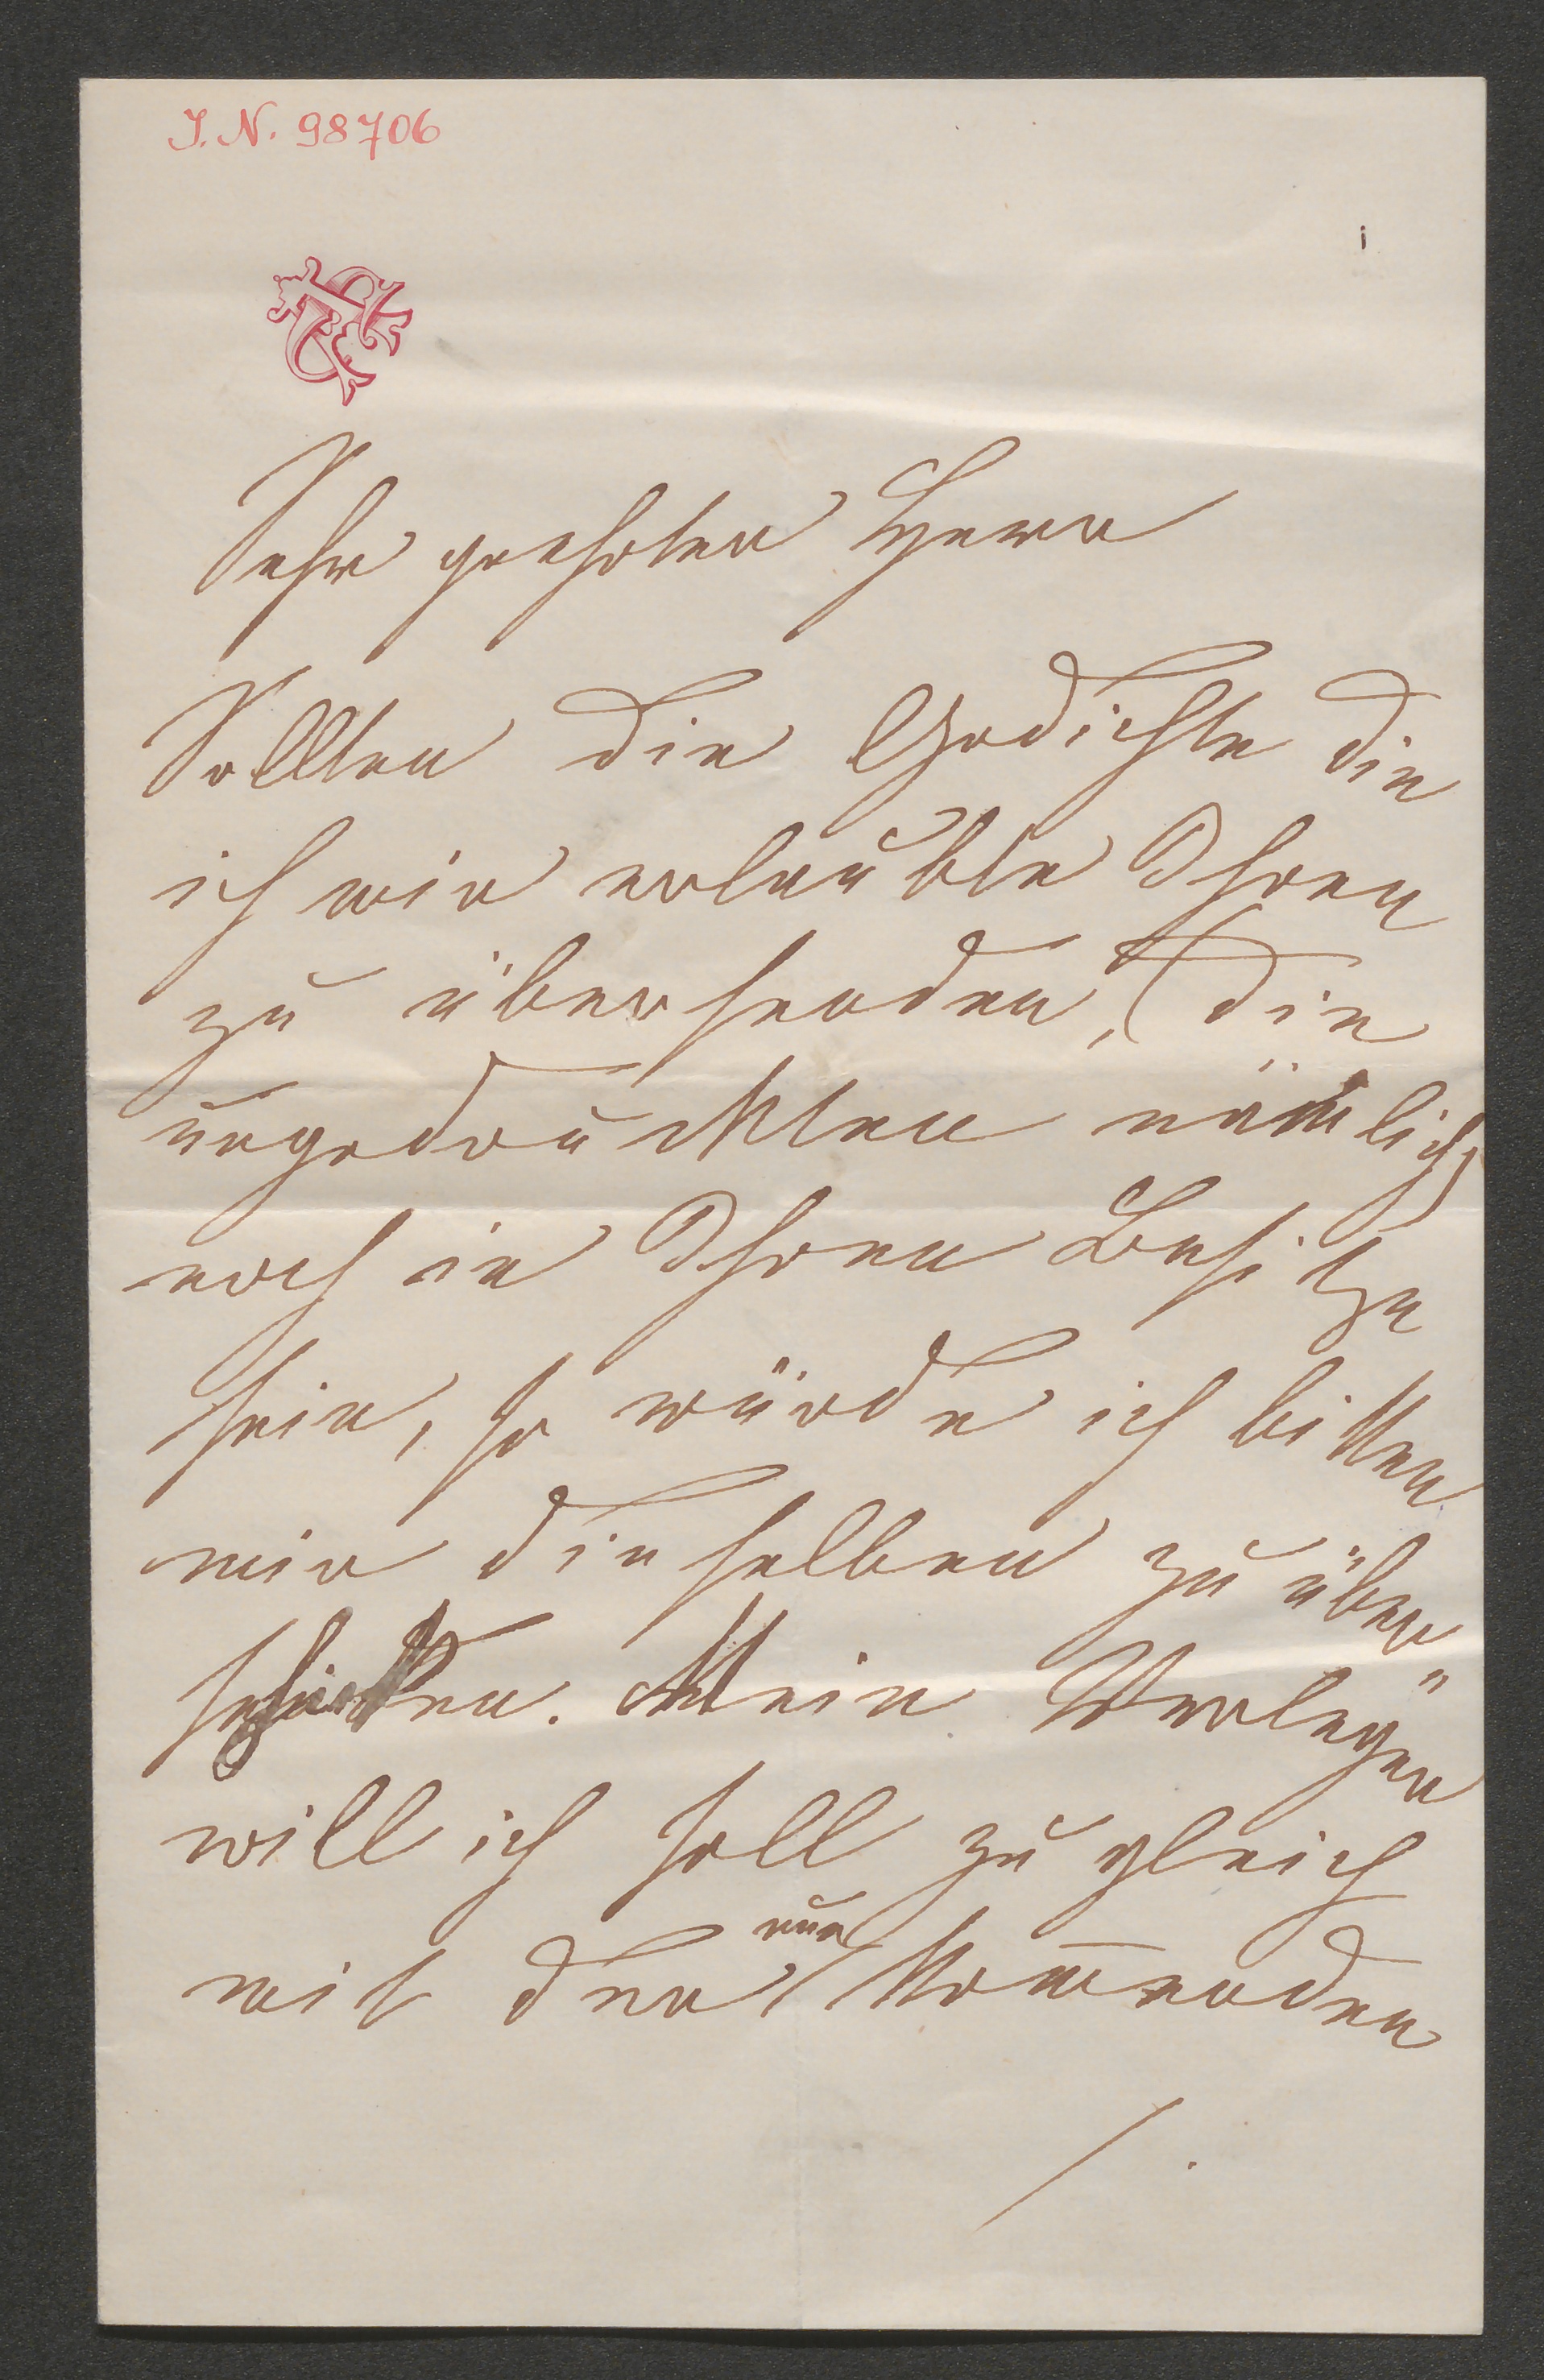 J. N. 98706
Sehr geehrter Herr
Sollten die Gedichte die
ich mir erlaubte Ihnen
zu übersenden, (die
ungedruckten nämlich)
noch in Ihren Besitze
sein, so würde ich bitten
mir dieselben zu über¬
schicken. Mein Verleger
will ich soll zugleich
mit der nun